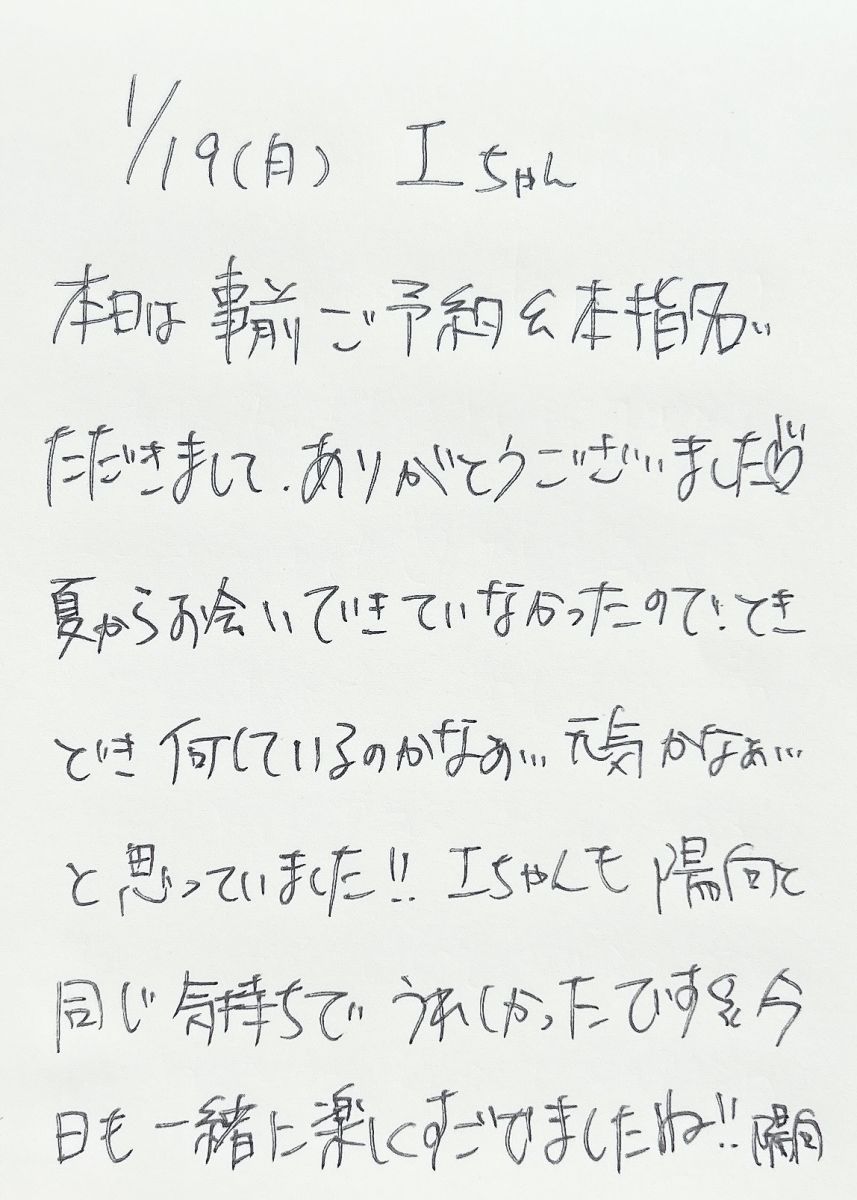 1/19(月) エちゃん
本日は事前ご予約&本指名い
ただきまして、ありがとうございました♡
夏からお会いできていなかったので、とき
どき何しているのかなぁ… 元気かなぁ…
と思っていました!! エちゃんも陽向と
同じ気持ちで うれしかったです 今
日も一緒に楽しくすごせましたね!! 陽向